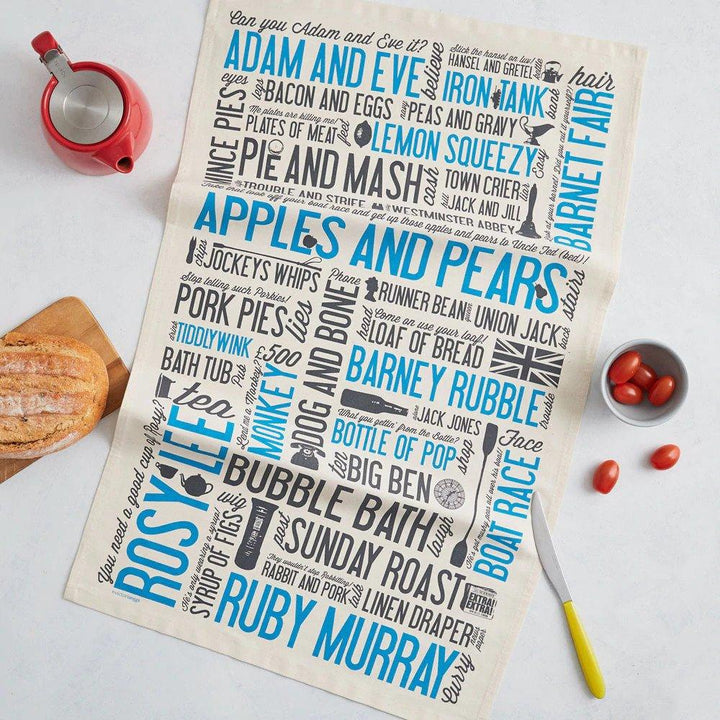 Can you Adam and Eve it?
ADAM AND EVE
believe
Stick the hansel on luv!
HANSEL AND GRETEL
kettle
IRON TANK
bank
hair
eyes
MINCE PIES
legs
BACON AND EGGS
navy
PEAS AND GRAVY
Me plates are killing me!
PLATES OF MEAT
feet
LEMON SQUEEZY
Easy
PIE AND MASH
cash
TOWN CRIER
liar
hill
JACK AND JILL
Look at your barnet! Did you cut it yourself?
BARNET FAIR
TROUBLE AND STRIFE
WESTMINSTER ABBEY
Take that look off your boat race and get up those apples and pears to Uncle Ted (bed)!
APPLES AND PEARS
stairs
chips
JOCKEYS WHIPS
Stop telling such Porkies!
PORK PIES
lies
Phone
DOG AND BONE
RUNNER BEAN
queen
UNION JACK
back
head
Come on use your loaf!
LOAF OF BREAD
drink
TIDDLYWINK
BATH TUB
Pub
£500
Lend me a Monkey?
MONKEY
BARNEY RUBBLE
trouble
tea
What you gettin' from the Bottle?
BOTTLE OF POP
shop
alone
JACK JONES
Face
You need a good cup of Rosy?
ROSY LEE
ten
BIG BEN
BUBBLE BATH
laugh
He's got mushy peas all over his boat!
BOAT RACE
He's only wearing a syrup!
SYRUP OF FIGS
wig
post
SUNDAY ROAST
They wouldn't stop Rabbiting!
RABBIT AND PORK
talk
LINEN DRAPER
news paper
EXTRA!
EXTRA!
RUBY MURRAY
Curry